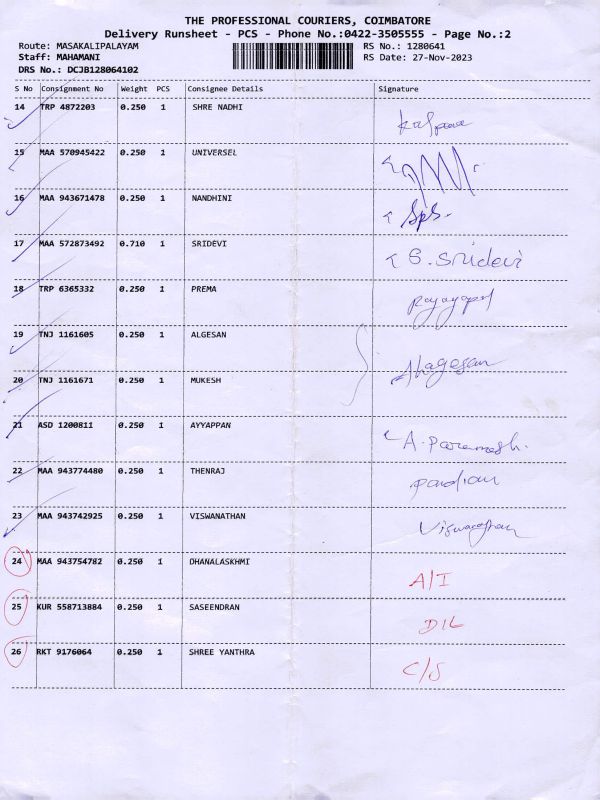 THE PROFESSIONAL COURIERS, COIMBATORE
Delivery Runsheet - PCS - Phone No.:0422-3505555 - Page No.:2
Route: MASAKALIPALAYAM RS No.: 1280641
Staff: MAHAMANI RS Date: 27-Nov-2023
DRS No.: DCJB128064102
S No Consignment No Weight PCS Consignee Details Signature
14 TRP 4872203 0.250 1 SHRE NADHI
15 MAA 570945422 0.250 1 UNIVERSEL
16 MAA 943671478 0.250 1 NANDHINI
17 MAA 572873492 0.710 1 SRIDEVI S. Sridevi
18 TRP 6365332 0.250 1 PREMA
19 TNJ 1161605 0.250 1 ALGESAN
Alagesan
20 TNJ 1161671 0.250 1 MUKESH
21 ASD 1200811 0.250 1 AYYAPPAN
22 MAA 943774480 0.250 1 THENRAJ
23 MAA 943742925 0.250 1 VISWANATHAN
24 MAA 943754782 0.250 1 DHANALASKHMI A/I
25 KUR 558713884 0.250 1 SASEENDRAN D/L
26 RKT 9176064 0.250 1 SHREE YANTHRA C/S